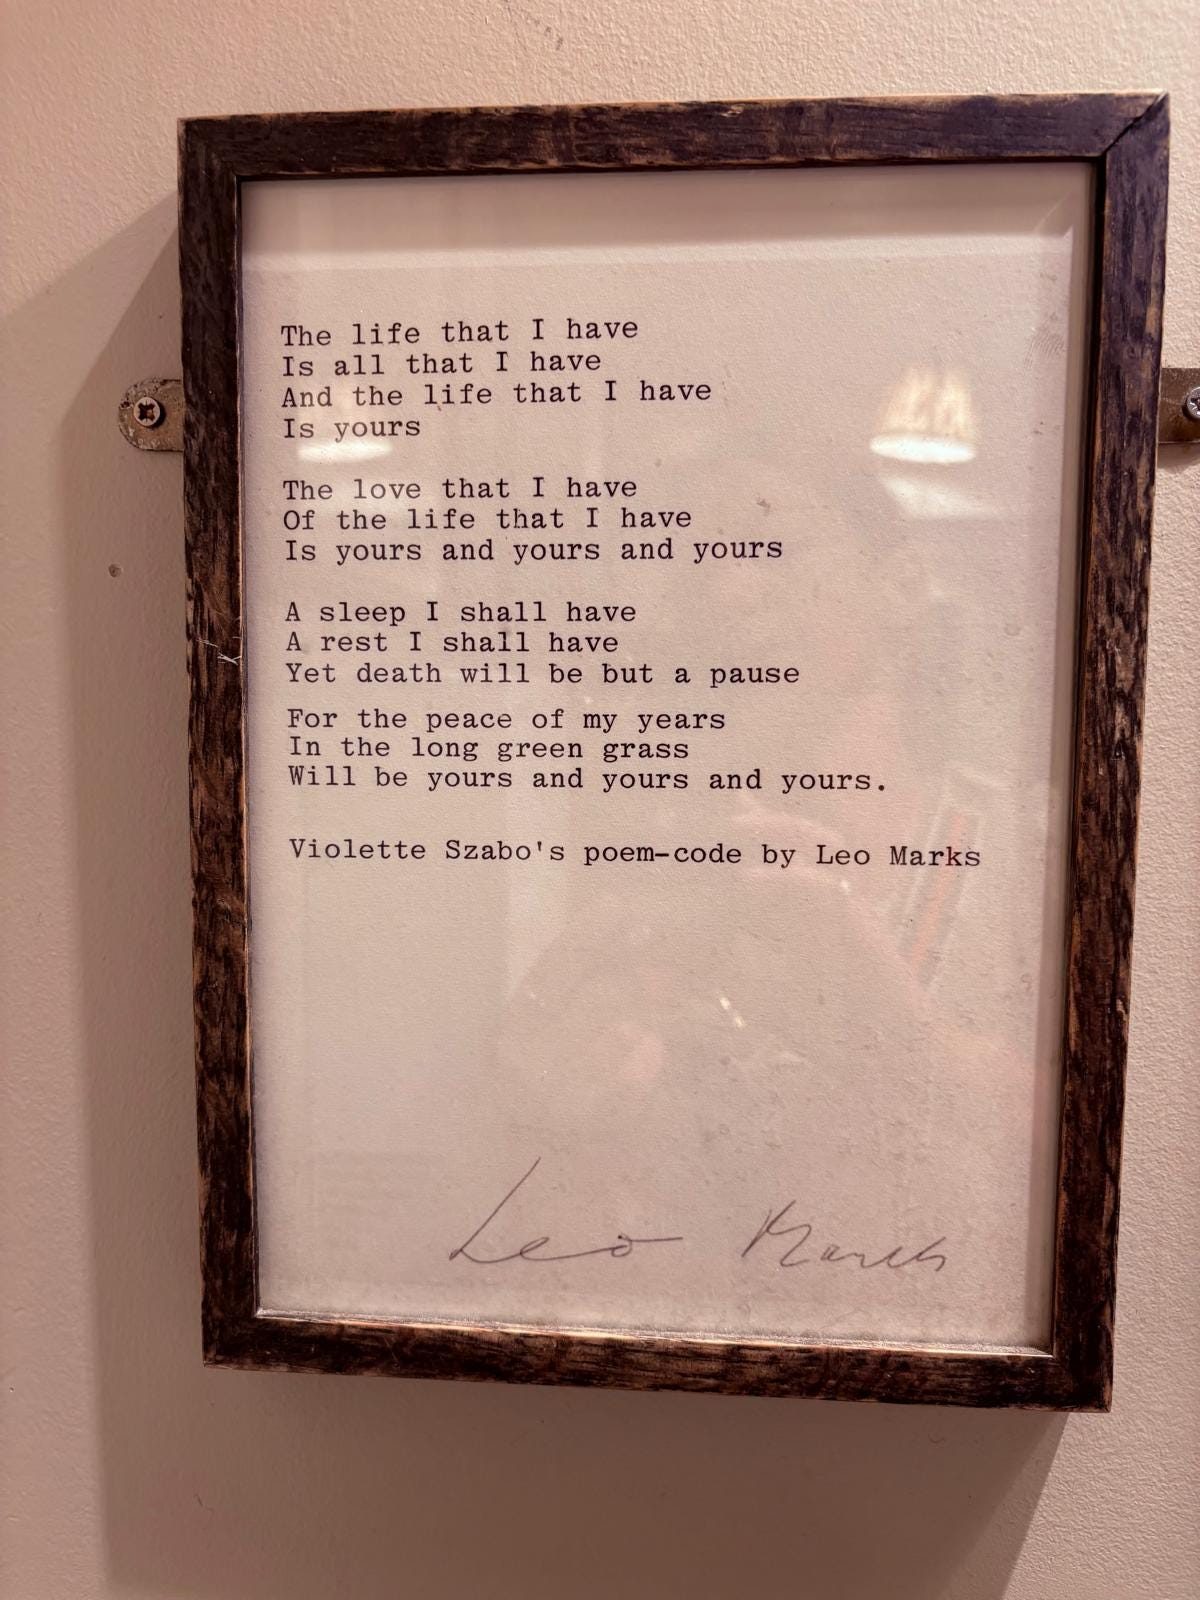 The life that I have
Is all that I have
And the life that I have
Is yours
The love that I have
Of the life that I have
Is yours and yours and yours
A sleep I shall have
A rest I shall have
Yet death will be but a pause
For the peace of my years
In the long green grass
Will be yours and yours and yours.
Violette Szabo's poem-code by Leo Marks
Leo Marks